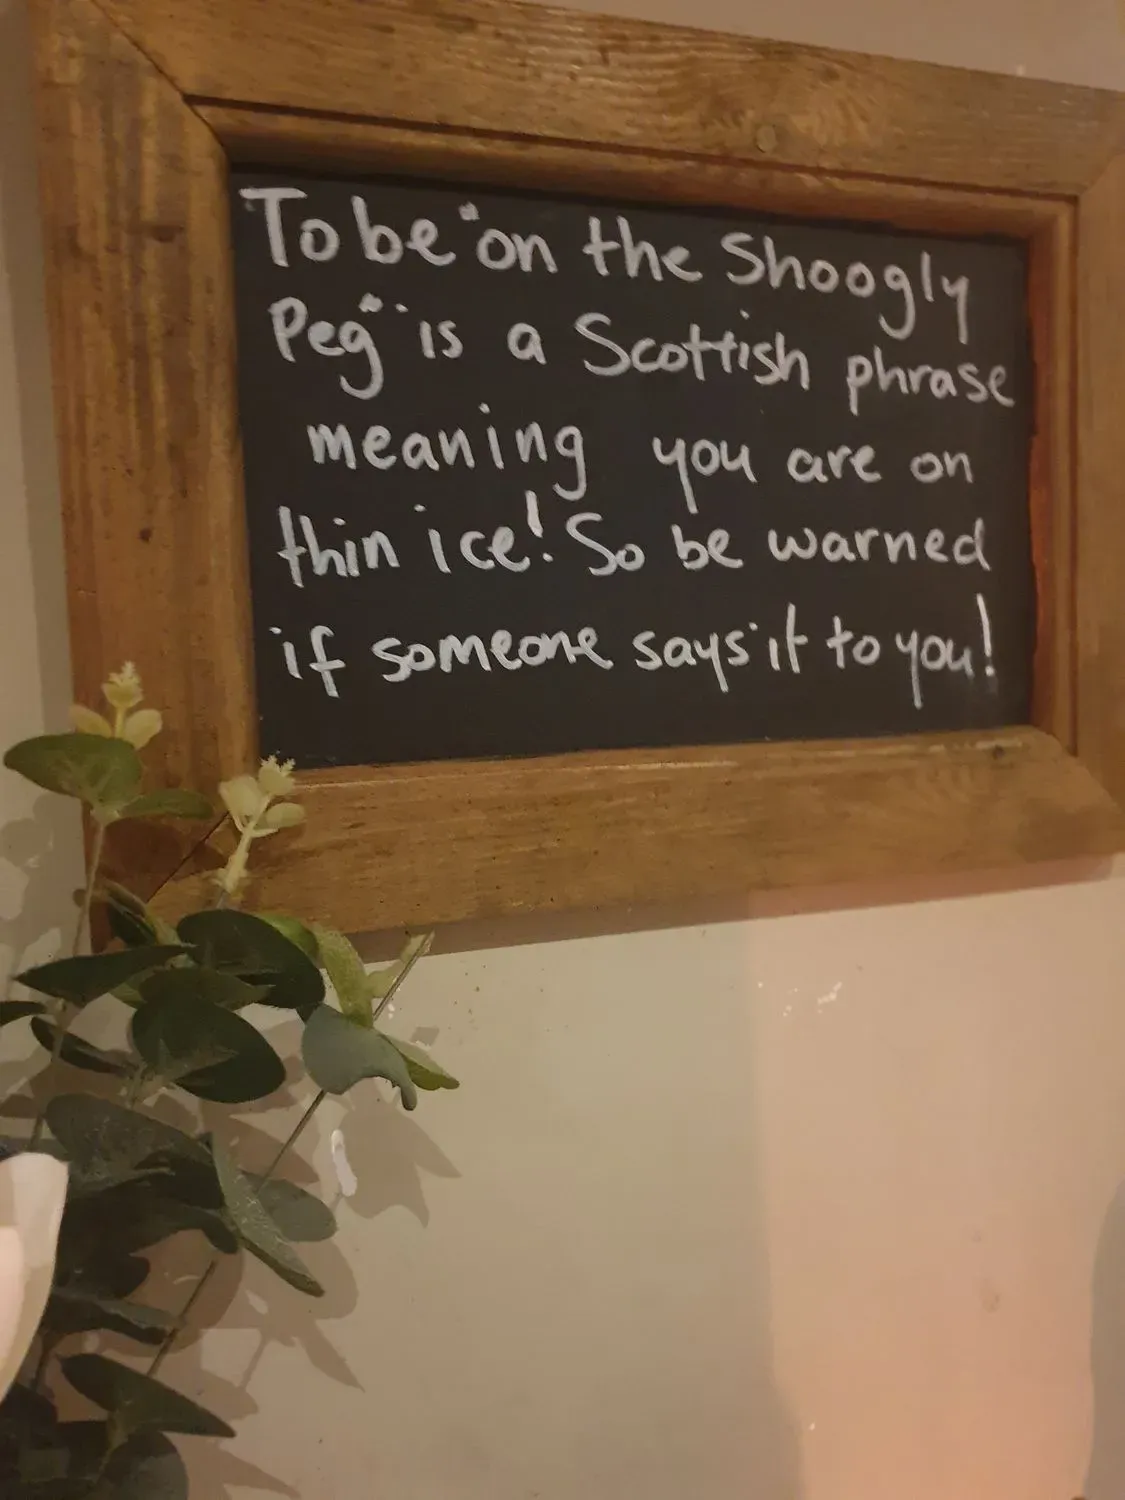 To be "on the Shoogly
Peg" is a Scottish phrase
meaning you are on
thin ice! So be warned
if someone says it to you!